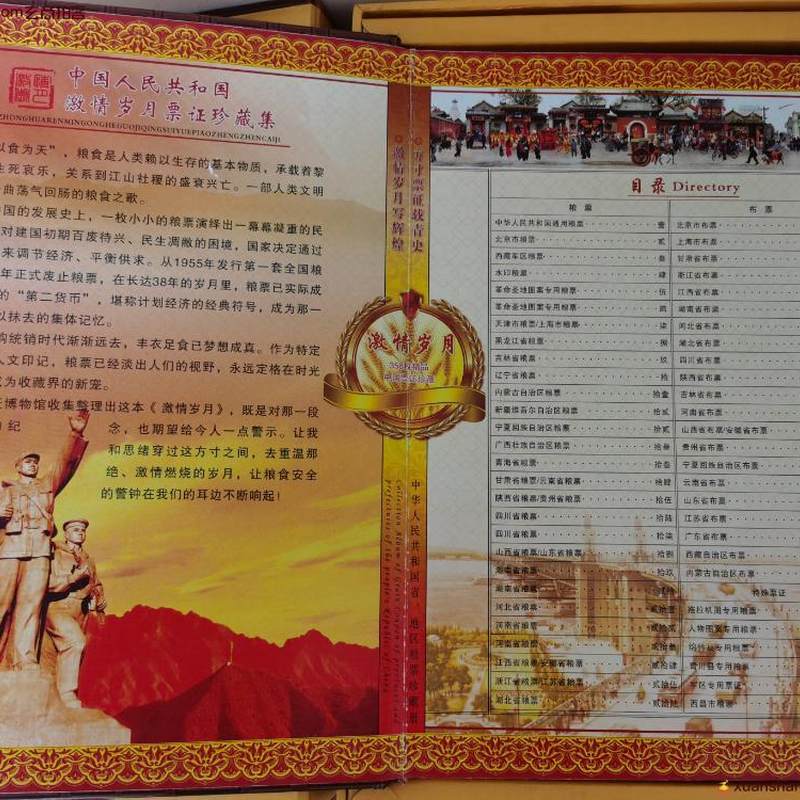 中国人民共和国
激情岁月票证珍藏集
ZHONGHUARENMINGONGHEGUOJIQINGSUIYUEPIAOZHENGZHENCANGJI
以食为天”，粮食是人类赖以生存的基本物质，承载着黎
生死哀乐，关系到江山社稷的盛衰兴亡。一部人类文明
曲荡气回肠的粮食之歌。
国的发展史上，一枚小小的粮票演绎出一幕幕凝重的民
对建国初期百废待兴、民生凋敝的困境，国家决定通过
来调节经济、平衡供求。从1955年发行第一套全国粮
年正式废止粮票，在长达38年的岁月里，粮票已实际成
的“第二货币”，堪称计划经济的经典符号，成为那一
以抹去的集体记忆。
购统销时代渐渐远去，丰衣足食已梦想成真。作为特定
人文印记，粮票已经淡出人们的视野，永远定格在时光
为收藏界的新宠。
博物馆收集整理出这本《激情岁月》，既是对那一段
纪
念，也期望给今人一点警示。让我
和思绪穿过这方寸之间，去重温那
绝、激情燃烧的岁月，让粮食安全
的警钟在我们的耳边不断响起！
激情岁月写辉煌
方寸票证载青史
激情岁月
358枚精品
中国票证珍藏
目录 Directory
粮票
布票
中华人民共和国通用粮票 壹 北京市布票
北京市粮票 贰 上海市布票
西藏军区粮票 叁 甘肃省布票
水印粮票 肆 浙江省布票
革命圣地图案专用粮票 伍 江西省布票
革命圣地图案专用粮票 陆 湖南省布票
天津市粮票/上海市粮票 柒 河北省布票
黑龙江省粮票 捌 湖北省布票
吉林省粮票 玖 四川省布票
辽宁省粮票 拾 陕西省布票
内蒙古自治区粮票 拾壹 吉林省布票
新疆维吾尔自治区粮票 拾贰 河南省布票
宁夏回族自治区粮票 拾贰 山西省布票/安徽省布票
广西壮族自治区粮票 拾叁 贵州省布票
青海省粮票 拾叁 宁夏回族自治区布票
甘肃省粮票/云南省粮票 拾肆 云南省布票
陕西省粮票/贵州省粮票 拾伍 山东省布票
四川省粮票 拾陆 江苏省布票
四川省粮票 拾柒 广东省布票
山西省粮票/山东省粮票 拾捌 西藏自治区布票
湖南省粮票 拾玖 内蒙古自治区布票
湖南省粮票 特殊票证
河北省粮票 贰拾壹 拖拉机图专用粮票
河南省粮票 贰拾贰 人物图案专用粮票
河南省粮票 贰拾叁 专用粮票
江西省粮票/安徽省粮票 贰拾肆 专用粮票
浙江省粮票/江苏省粮票 贰拾伍 军区专用票证
湖北省粮票 贰拾陆 西昌市粮票